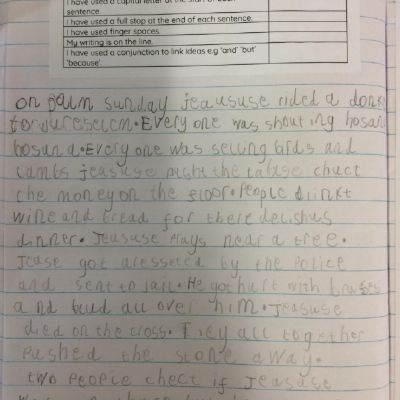 I have used a capital letter at the start of each
sentence.
I have used a full stop at the end of each sentence.
I have used finger spaces.
My writing is on the line.
I have used a conjunction to link ideas e.g 'and' 'but'
'because'.
on palm sunday jeasuse rided a donk
to . Every one was shouting hosana
hosana. Every one was selling birds and
lambs jeasuse the table chuct
the money on the floor. People drinkt
wine and bread for there delishus
dinner. Jeasuse prays near a tree.
Jease got aresseted by the police
and sent to jail. He got hurt with
and all over him. Jeasuse
died on the cross. They all together
pushed the stone away.
two people chect if Jeasuse